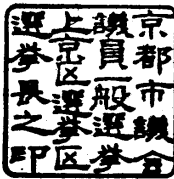 京都市議会
議員一般選挙
上京区選挙区
選挙長之印